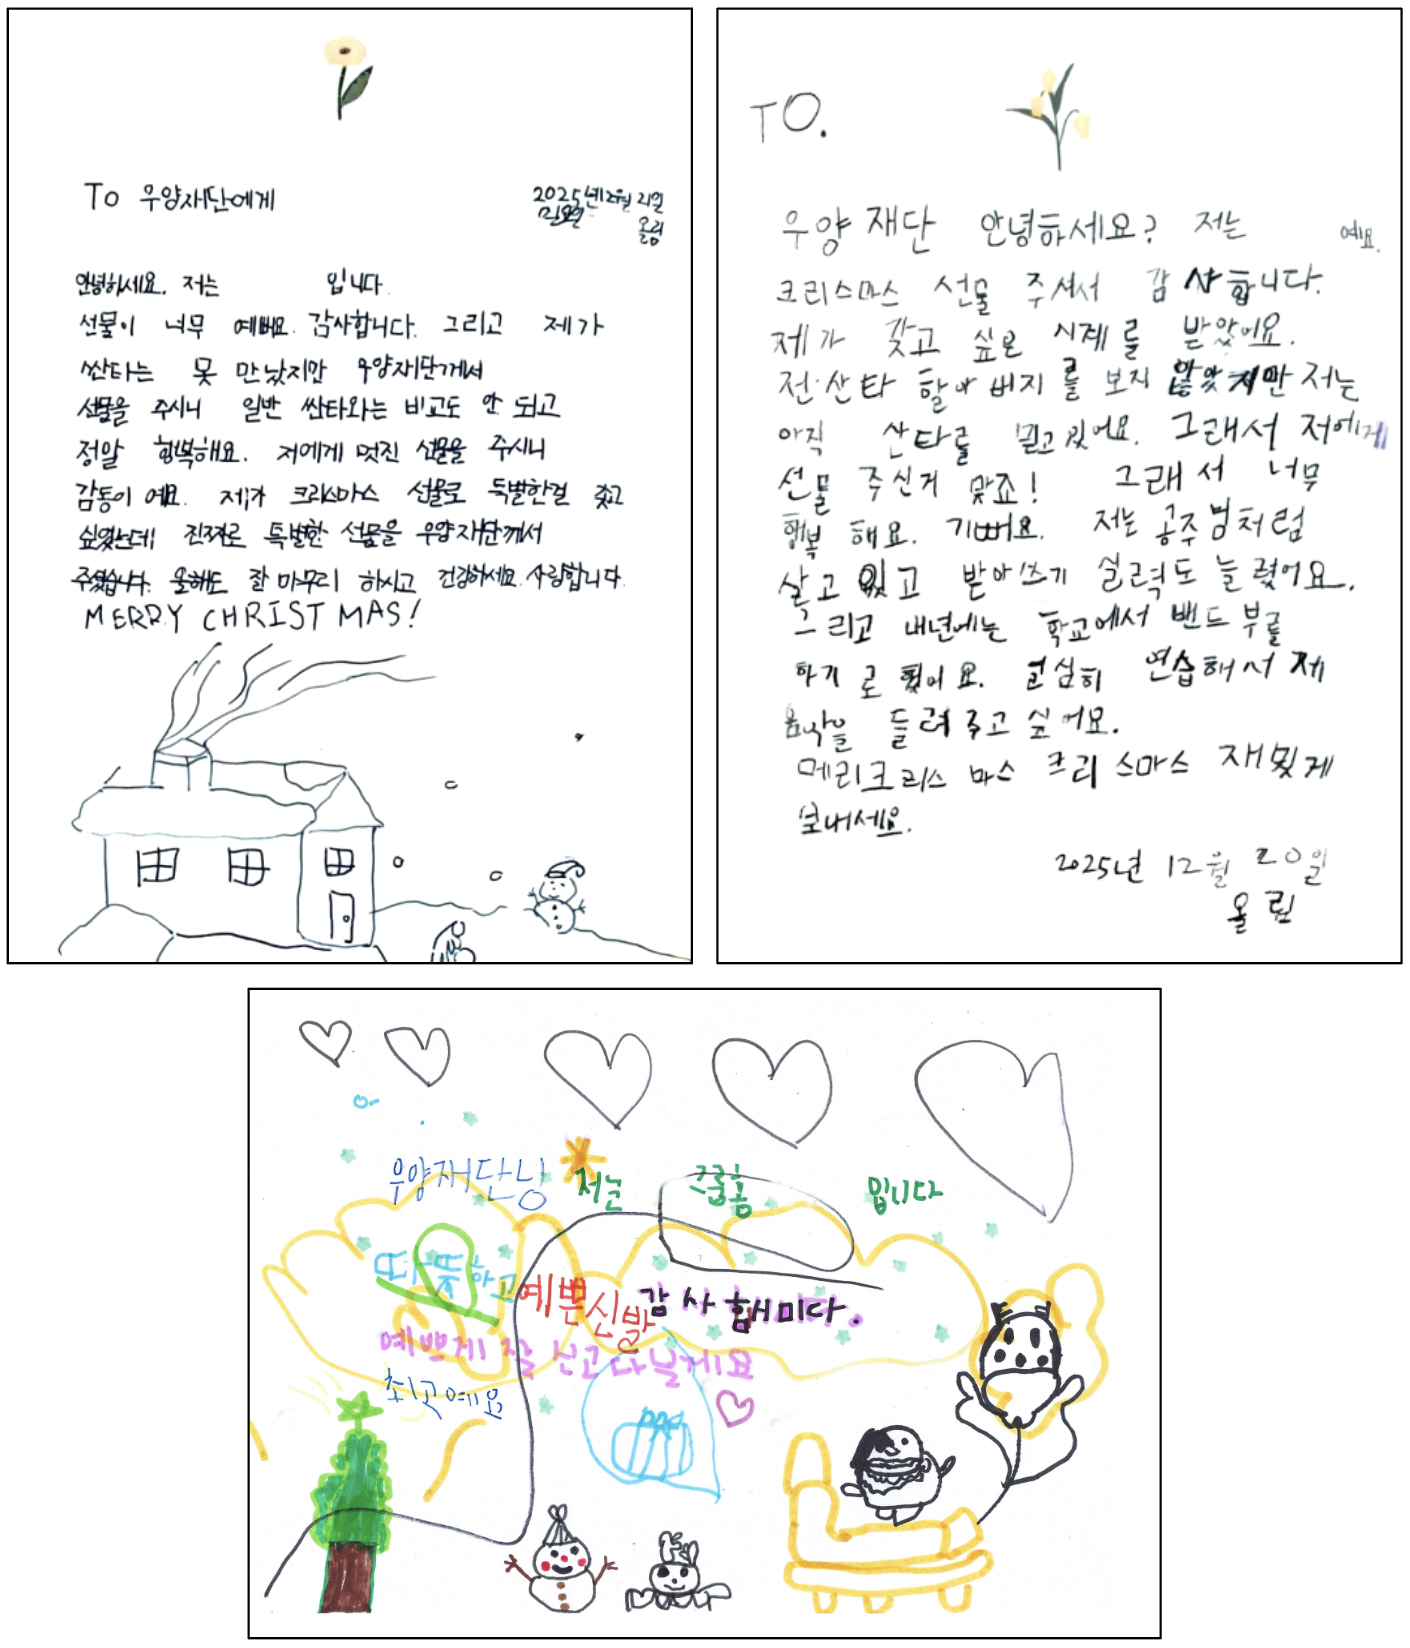 To 우양재단에게
2025년 12월 21일
올림
안녕하세요. 저는 입니다.
선물이 너무 예뻐요. 감사합니다. 그리고 제가
싼타는 못 만났지만 우양재단께서
선물을 주시니 일반 싼타와는 비교도 안 되고
정말 행복해요. 저에게 멋진 선물을 주시니
감동이예요. 제가 크리스마스 선물로 특별한걸 갖고
싶었는데 진짜로 특별한 선물을 우양재단께서
주셨습니다. 올해도 잘 마무리 하시고 건강하세요. 사랑합니다.
MERRY CHRISTMAS!
TO.
우양재단 안녕하세요? 저는 예요.
크리스마스 선물 주셔서 감사합니다.
제가 갖고 싶은 시계를 받았어요.
전 산타 할아버지를 보지 않았지만 저는
아직 산타를 믿고있어요. 그래서 저에게
선물 주신거 맞죠! 그래서 너무
행복해요. 기뻐요. 저는 공주님처럼
살고있고 받아쓰기 실력도 늘렸어요.
그리고 내년에는 학교에서 밴드부를
하기로 했어요. 열심히 연습해서 제
음악을 들려주고 싶어요.
메리크리스마스 크리스마스 재밌게
보내세요.
2025년 12월 20일
올림
우양재단님 저는 그룹홈 입니다
따뜻하고 예쁜신발 감사해미다.
예쁘게 잘 신고다닐게요
최고예요